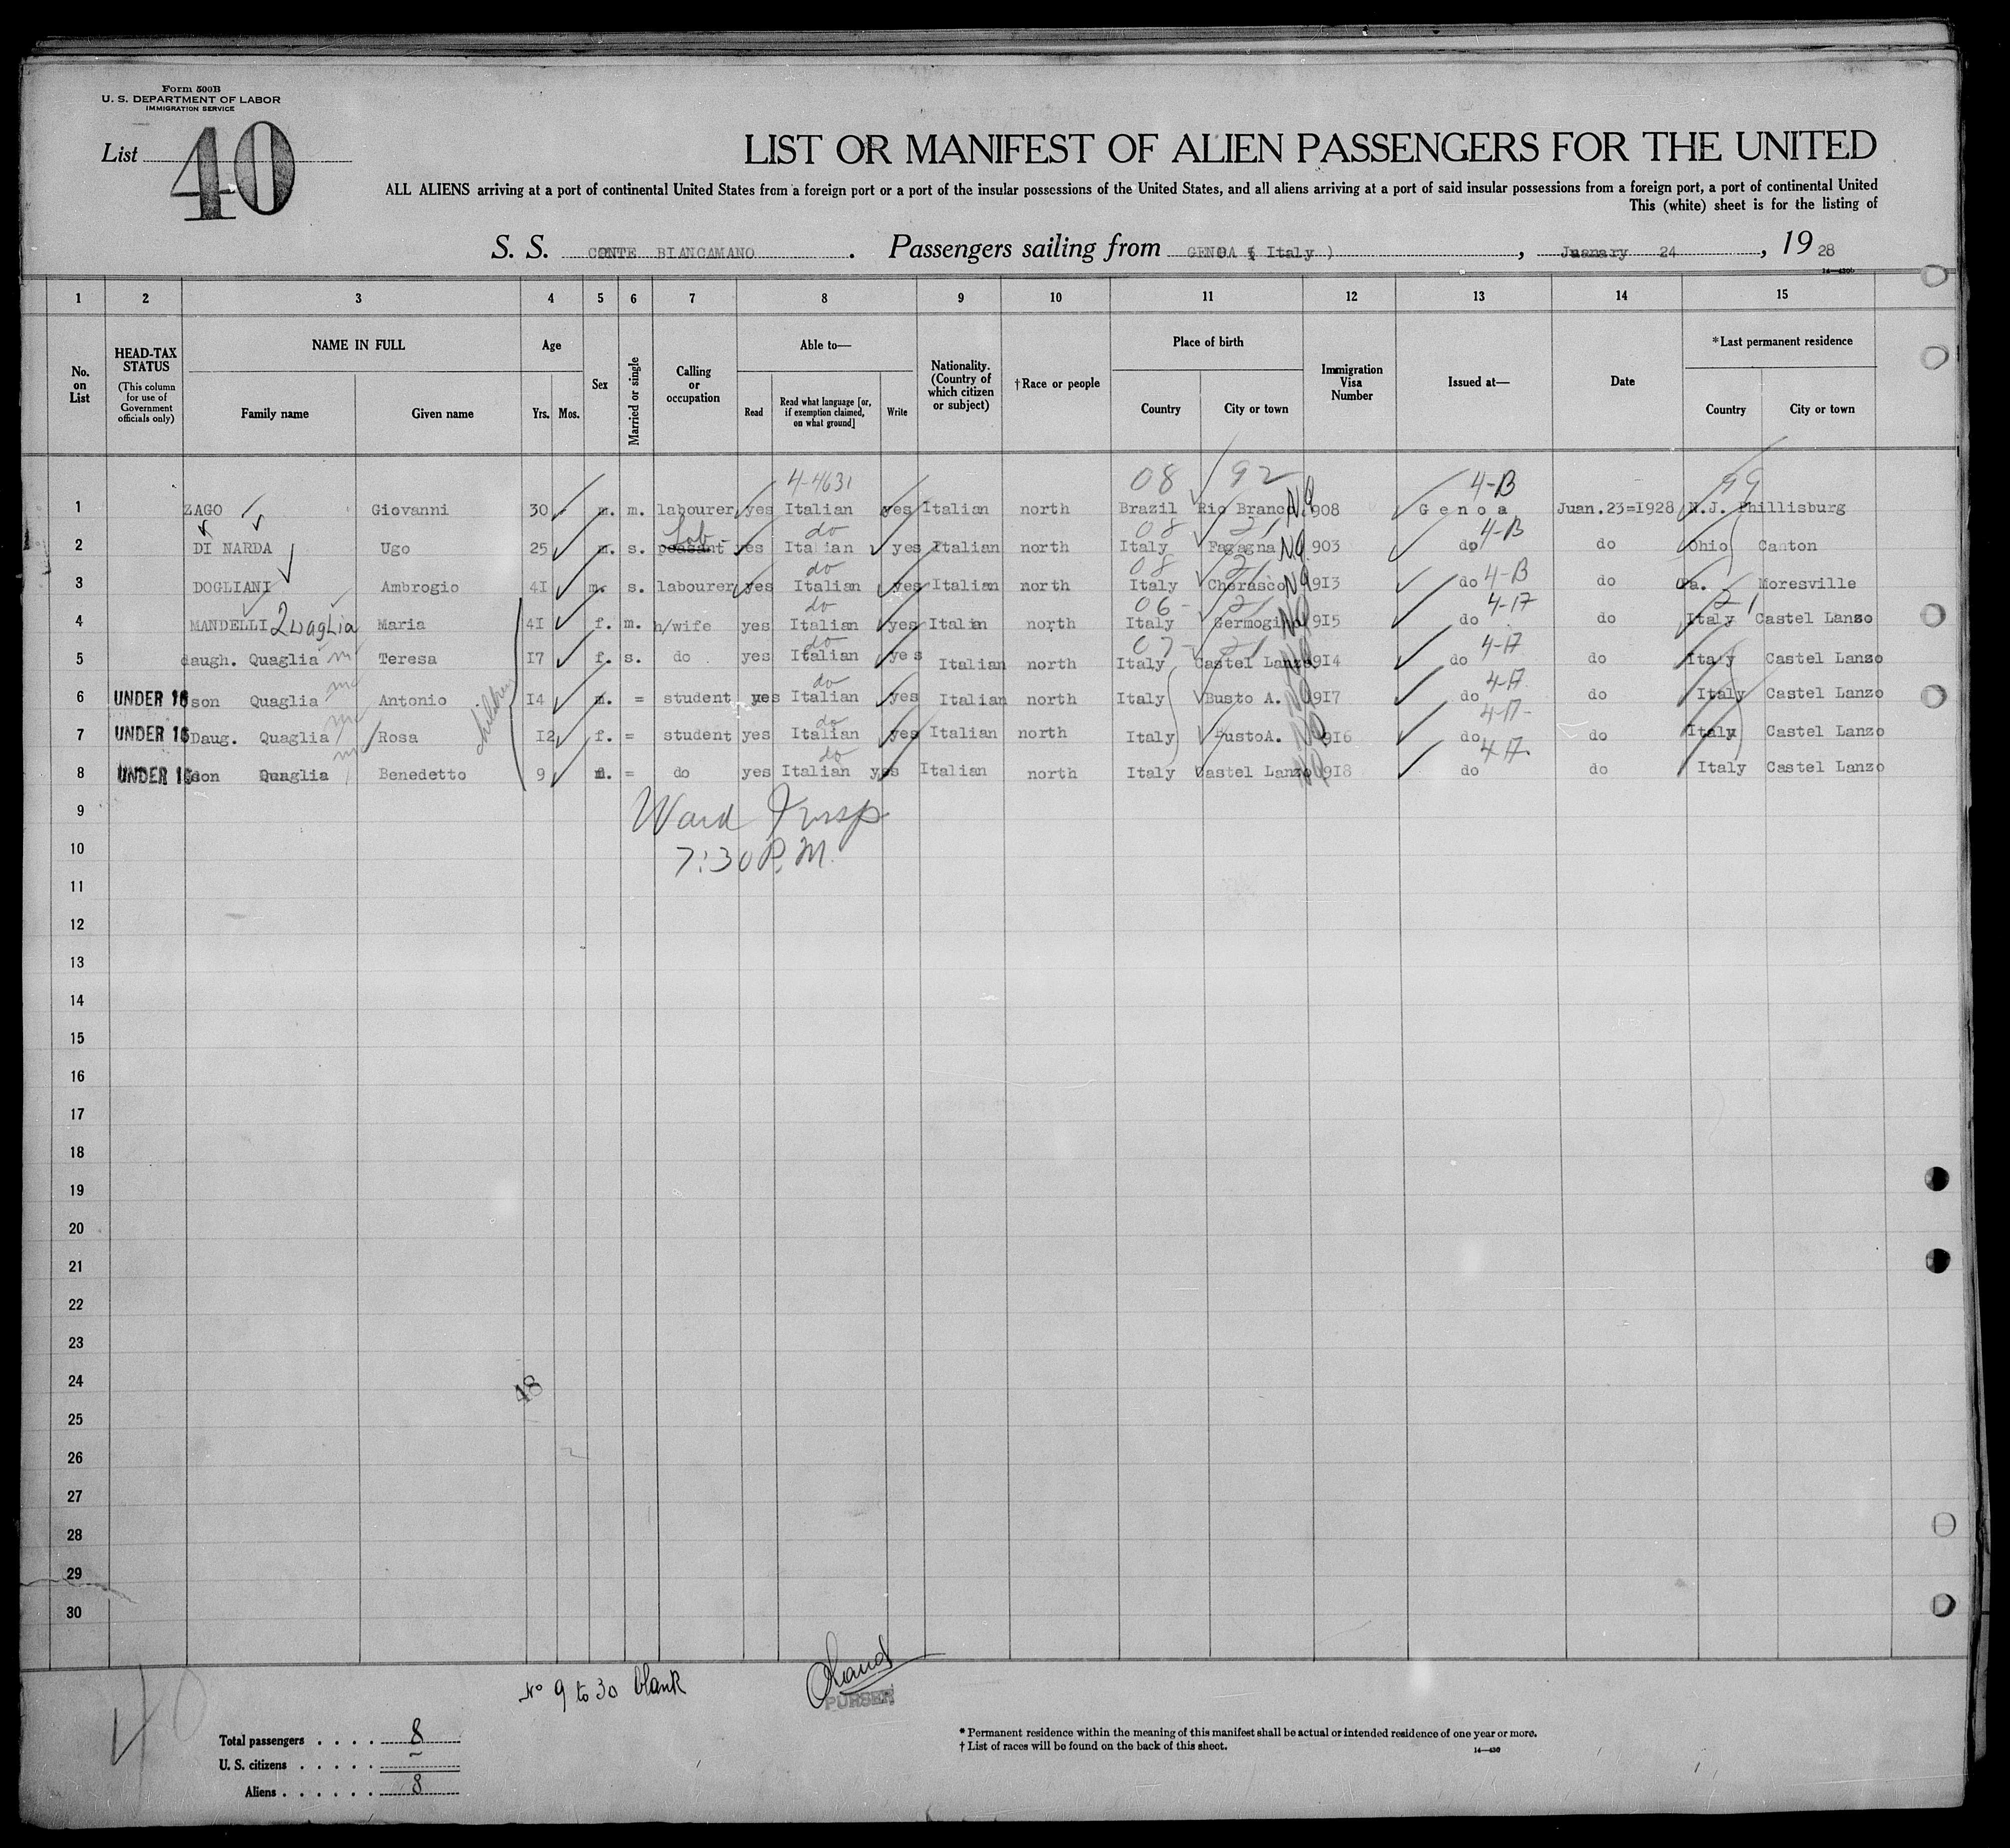 Form 500B
U. S. DEPARTMENT OF LABOR
IMMIGRATION SERVICE
List 40
LIST OR MANIFEST OF ALIEN PASSENGERS FOR THE UNITED
ALL ALIENS arriving at a port of continental United States from a foreign port or a port of the insular possessions of the United States, and all aliens arriving at a port of said insular possessions from a foreign port, a port of continental United
This (white) sheet is for the listing of
S. S. CONTE BIANCAMANO. Passengers sailing from GENOA ( Italy ), January 24, 1928
14—430b
1 2 3 4 5 6 7 8 9 10 11 12 13 14 15
No. on List
HEAD-TAX STATUS (This column for use of Government officials only)
NAME IN FULL Family name Given name
Age Yrs. Mos.
Sex
Married or single
Calling or occupation
Able to— Read Read what language [or, if exemption claimed, on what ground] Write
Nationality. (Country of which citizen or subject)
†Race or people
Place of birth Country City or town
Immigration Visa Number
Issued at—
Date
*Last permanent residence Country City or town
4-4631 08 92 4-B 99
1 ZAGO Giovanni 30 m. m. labourer yes Italian yes Italian north Brazil Rio Branco NQ 908 Genoa Juan.23=1928 N.J. Phillisburg
Lab do 08 21 4-B
2 DI NARDA Ugo 25 m. s. peasant yes Italian yes Italian north Italy Fagagna NQ 903 do do Ohio Canton
do 08 21 4-B
3 DOGLIANI Ambrogio 4I m. s. labourer yes Italian yes Italian north Italy Cherasco NQ 9I3 do do Pa. Moresville
do 06 21 4-17 21
4 MANDELLI Quaglia Maria 4I f. m. h/wife yes Italian yes Italian north Italy NQ 9I5 do do Italy Castel Lanso
do 07 21 4-17
5 daugh. Quaglia Teresa I7 f. s. do yes Italian yes Italian north Italy Castel Lanzo 9I4 do do Italy Castel Lanzo
children do 4-17
6 UNDER 16 son Quaglia Antonio I4 m. = student yes Italian yes Italian north Italy Busto A. 9I7 do do Italy Castel Lanzo
do 4-17-
7 UNDER 16 Daug. Quaglia Rosa I2 f. = student yes Italian yes Italian north Italy BustoA. 9I6 do do Italy Castel Lanzo
do 4-17
8 UNDER 16 son Quaglia Benedetto 9 m. = do yes Italian yes Italian north Italy Castel Lanzo 9I8 do do Italy Castel Lanzo
9 Ward Insp
10 7:30 P.M.
11
12
13
14
15
16
17
18
19
20
21
22
23
24 48
25
26
27
28
29
30
No 9 to 30 blank
PURSER
40
Total passengers . . . . 8
U. S. citizens . . . . . –
Aliens . . . . . . 8
* Permanent residence within the meaning of this manifest shall be actual or intended residence of one year or more.
† List of races will be found on the back of this sheet.
14—430